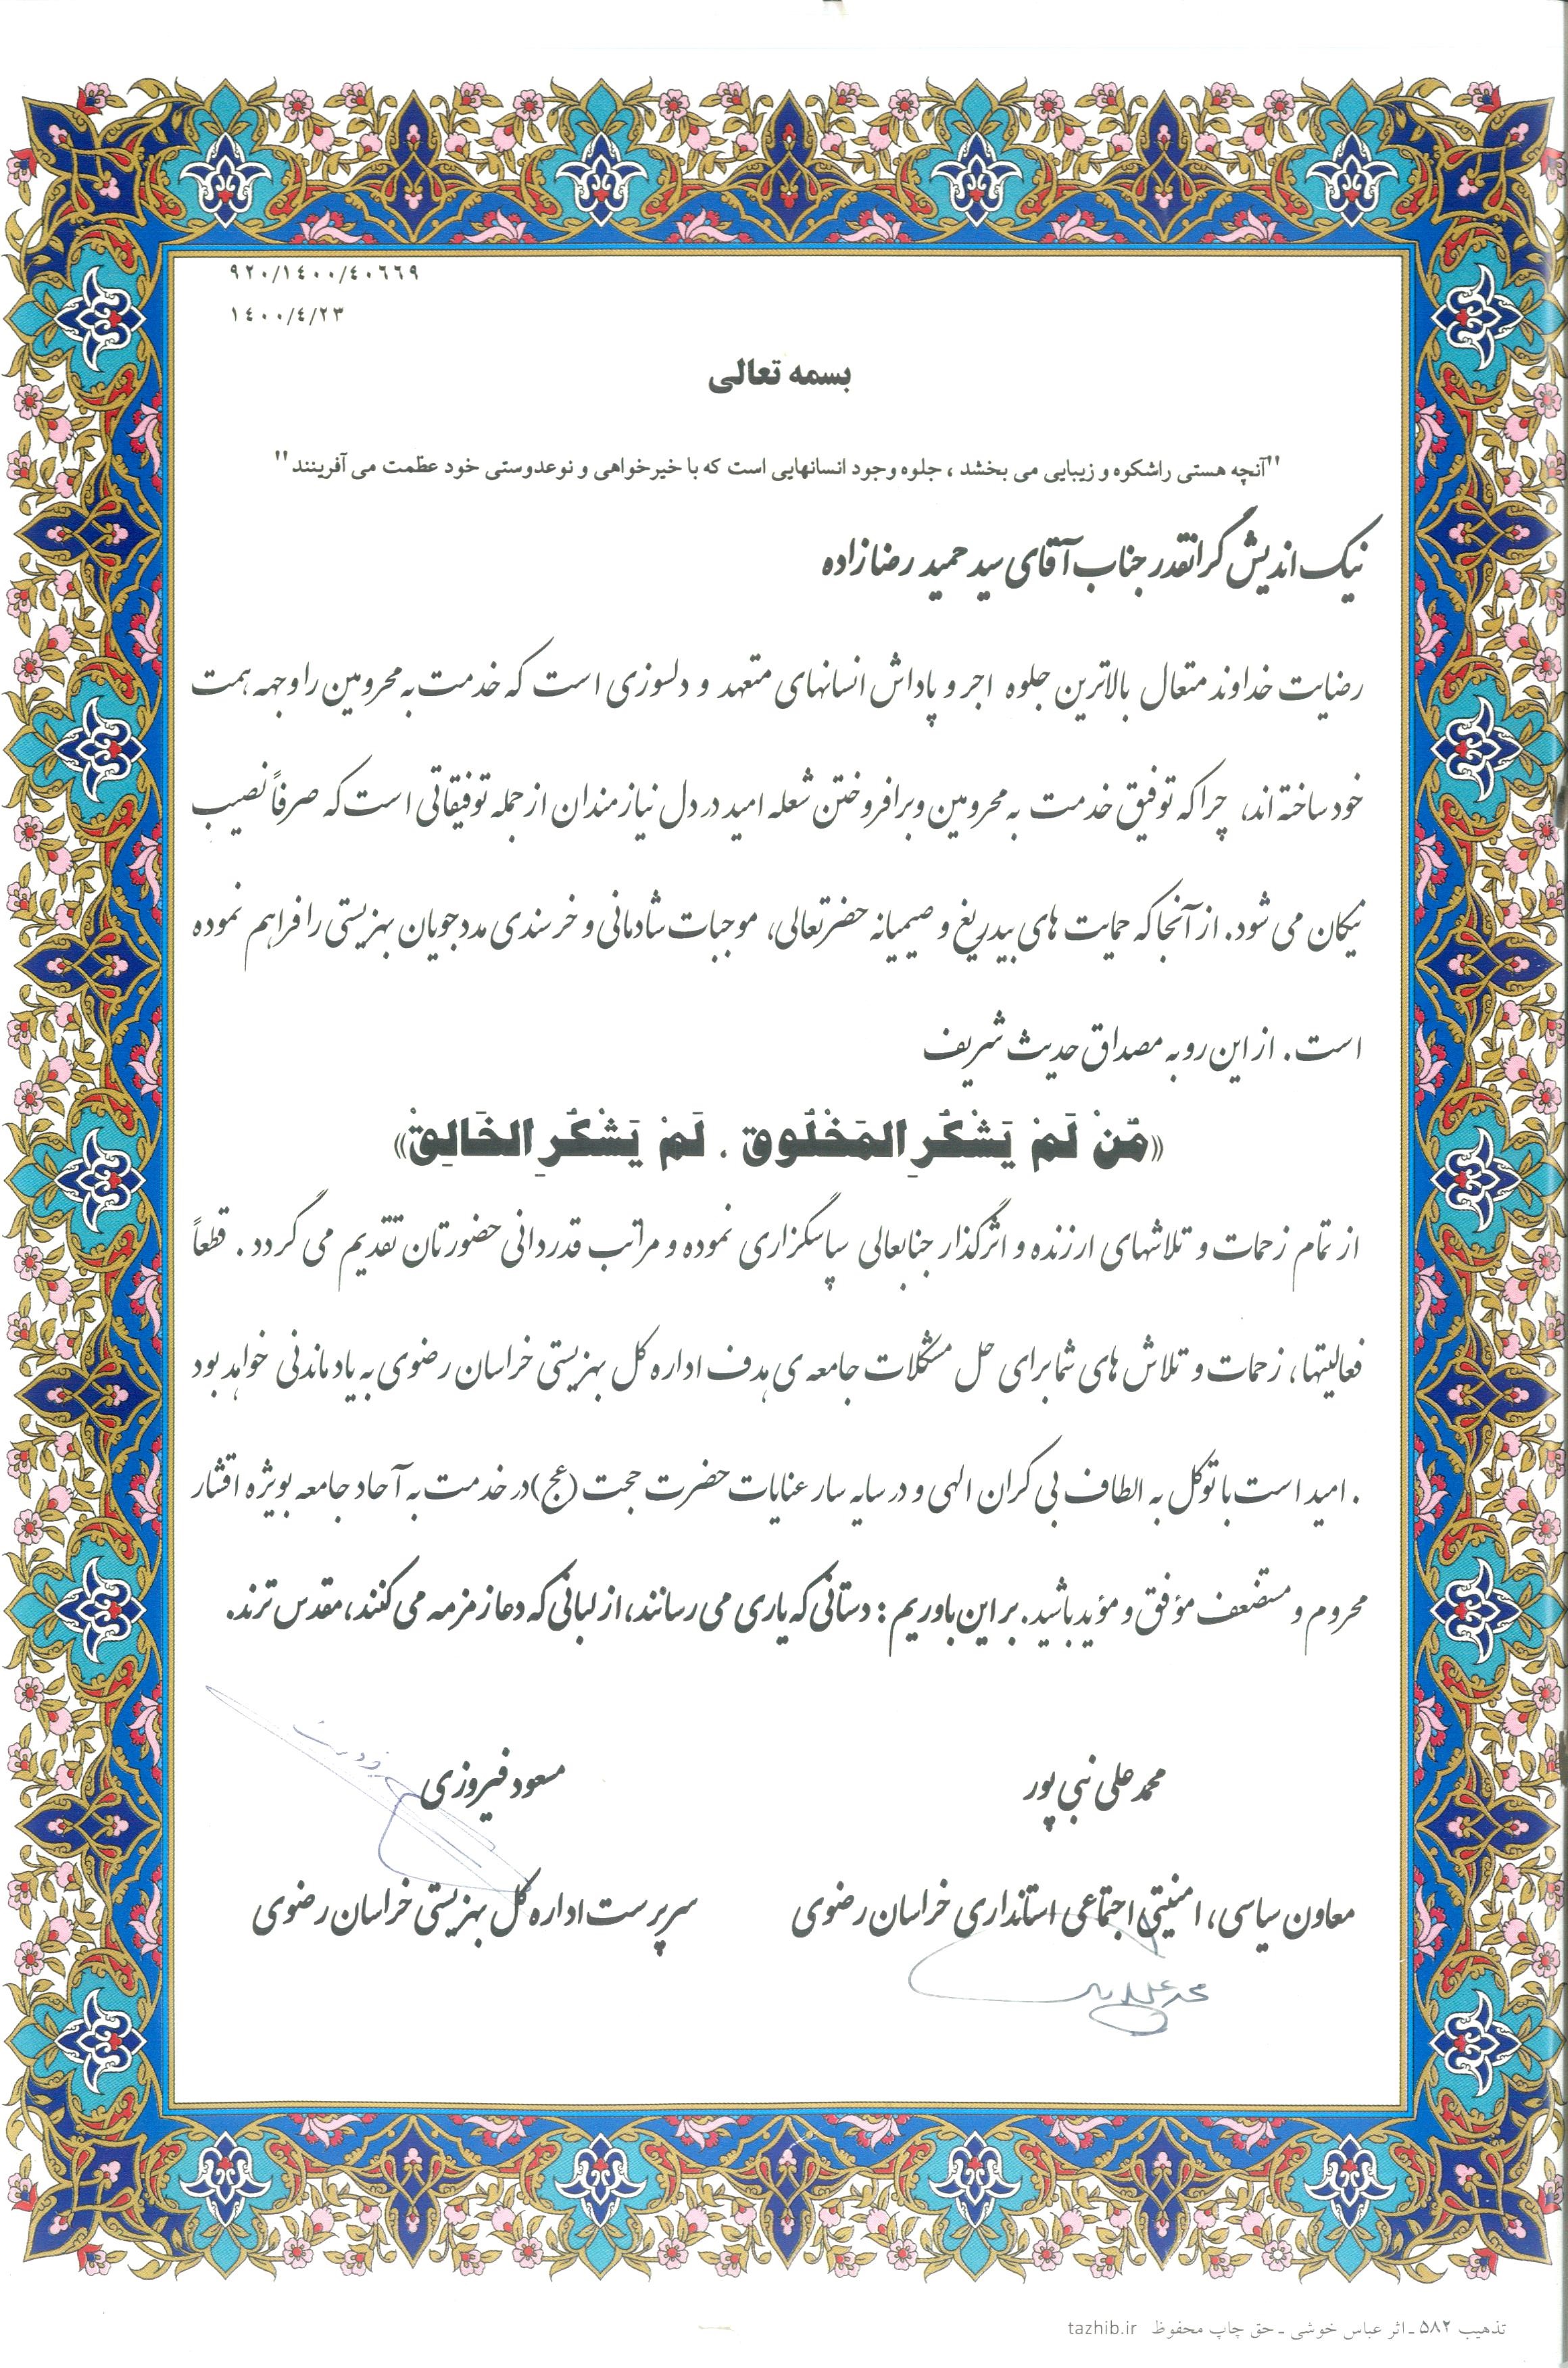 ۹۲۰/۱۴۰۰/۴۰۶۶۹
۱۴۰۰/۴/۲۳
بسمه تعالی
"آنچه هستی راشکوه و زیبایی می بخشد ، جلوه وجود انسانهایی است که با خیرخواهی و نوعدوستی خود عظمت می آفرینند"
نیک اندیش گرانقدر جناب آقای سید حمید رضازاده
رضایت خداوند متعال بالاترین جلوه اجر و پاداش انسانهای متعهد و دلسوزی است که خدمت به محرومین را وجهه همت
خود ساخته اند، چرا که توفیق خدمت به محرومین و برافروختن شعله امید در دل نیازمندان از جمله توفیقاتی است که صرفاً نصیب
نیکان می شود. از آنجا که حمایت های بیدریغ و صمیمانه حضرتعالی، موجبات شادمانی و خرسندی مددجویان بهزیستی را فراهم نموده
است. از این رو به مصداق حدیث شریف
«مَنْ لَمْ یَشْکُرِ المَخْلُوق . لَمْ یَشْکُرِ الخَالِقْ»
از تمام زحمات و تلاشهای ارزنده و اثرگذار جنابعالی سپاسگزاری نموده و مراتب قدردانی حضورتان تقدیم می گردد . قطعاً
فعالیتها، زحمات و تلاش های شما برای حل مشکلات جامعه ی هدف اداره کل بهزیستی خراسان رضوی به یاد ماندنی خواهد بود
. امید است با توکل به الطاف بی کران الهی و در سایه سار عنایات حضرت حجت (عج) در خدمت به آحاد جامعه بویژه اقشار
محروم و مستضعف مؤفق و مؤید باشید. بر این باوریم : دستانی که یاری می رسانند، از لبانی که دعا زمزمه می کنند، مقدس ترند.
محمد علی نبی پور
مسعود فیروزی
معاون سیاسی، امنیتی اجتماعی استانداری خراسان رضوی
سرپرست اداره کل بهزیستی خراسان رضوی
تذهیب ۵۸۲ ـ اثر عباس خوشی ـ حق چاپ محفوظ tazhib.ir